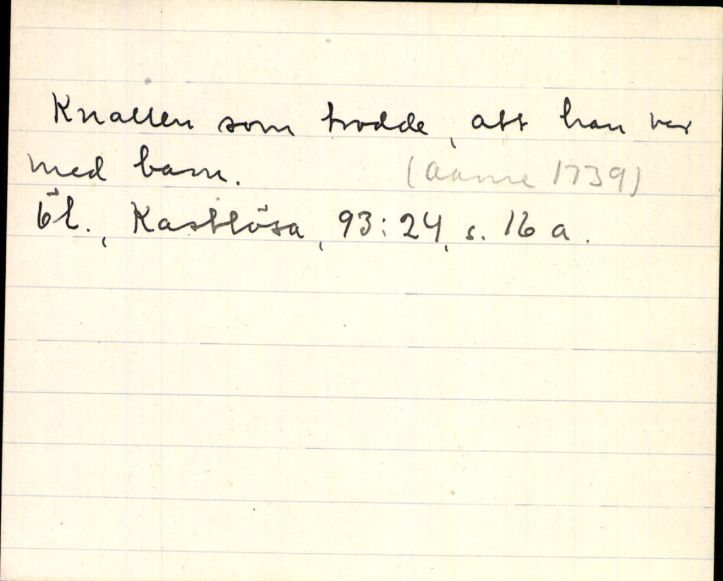 Knallen som trodde, att han var
med barn. (Aarne 1739)
Öl., Kastlösa, 93:24, s. 16 a.